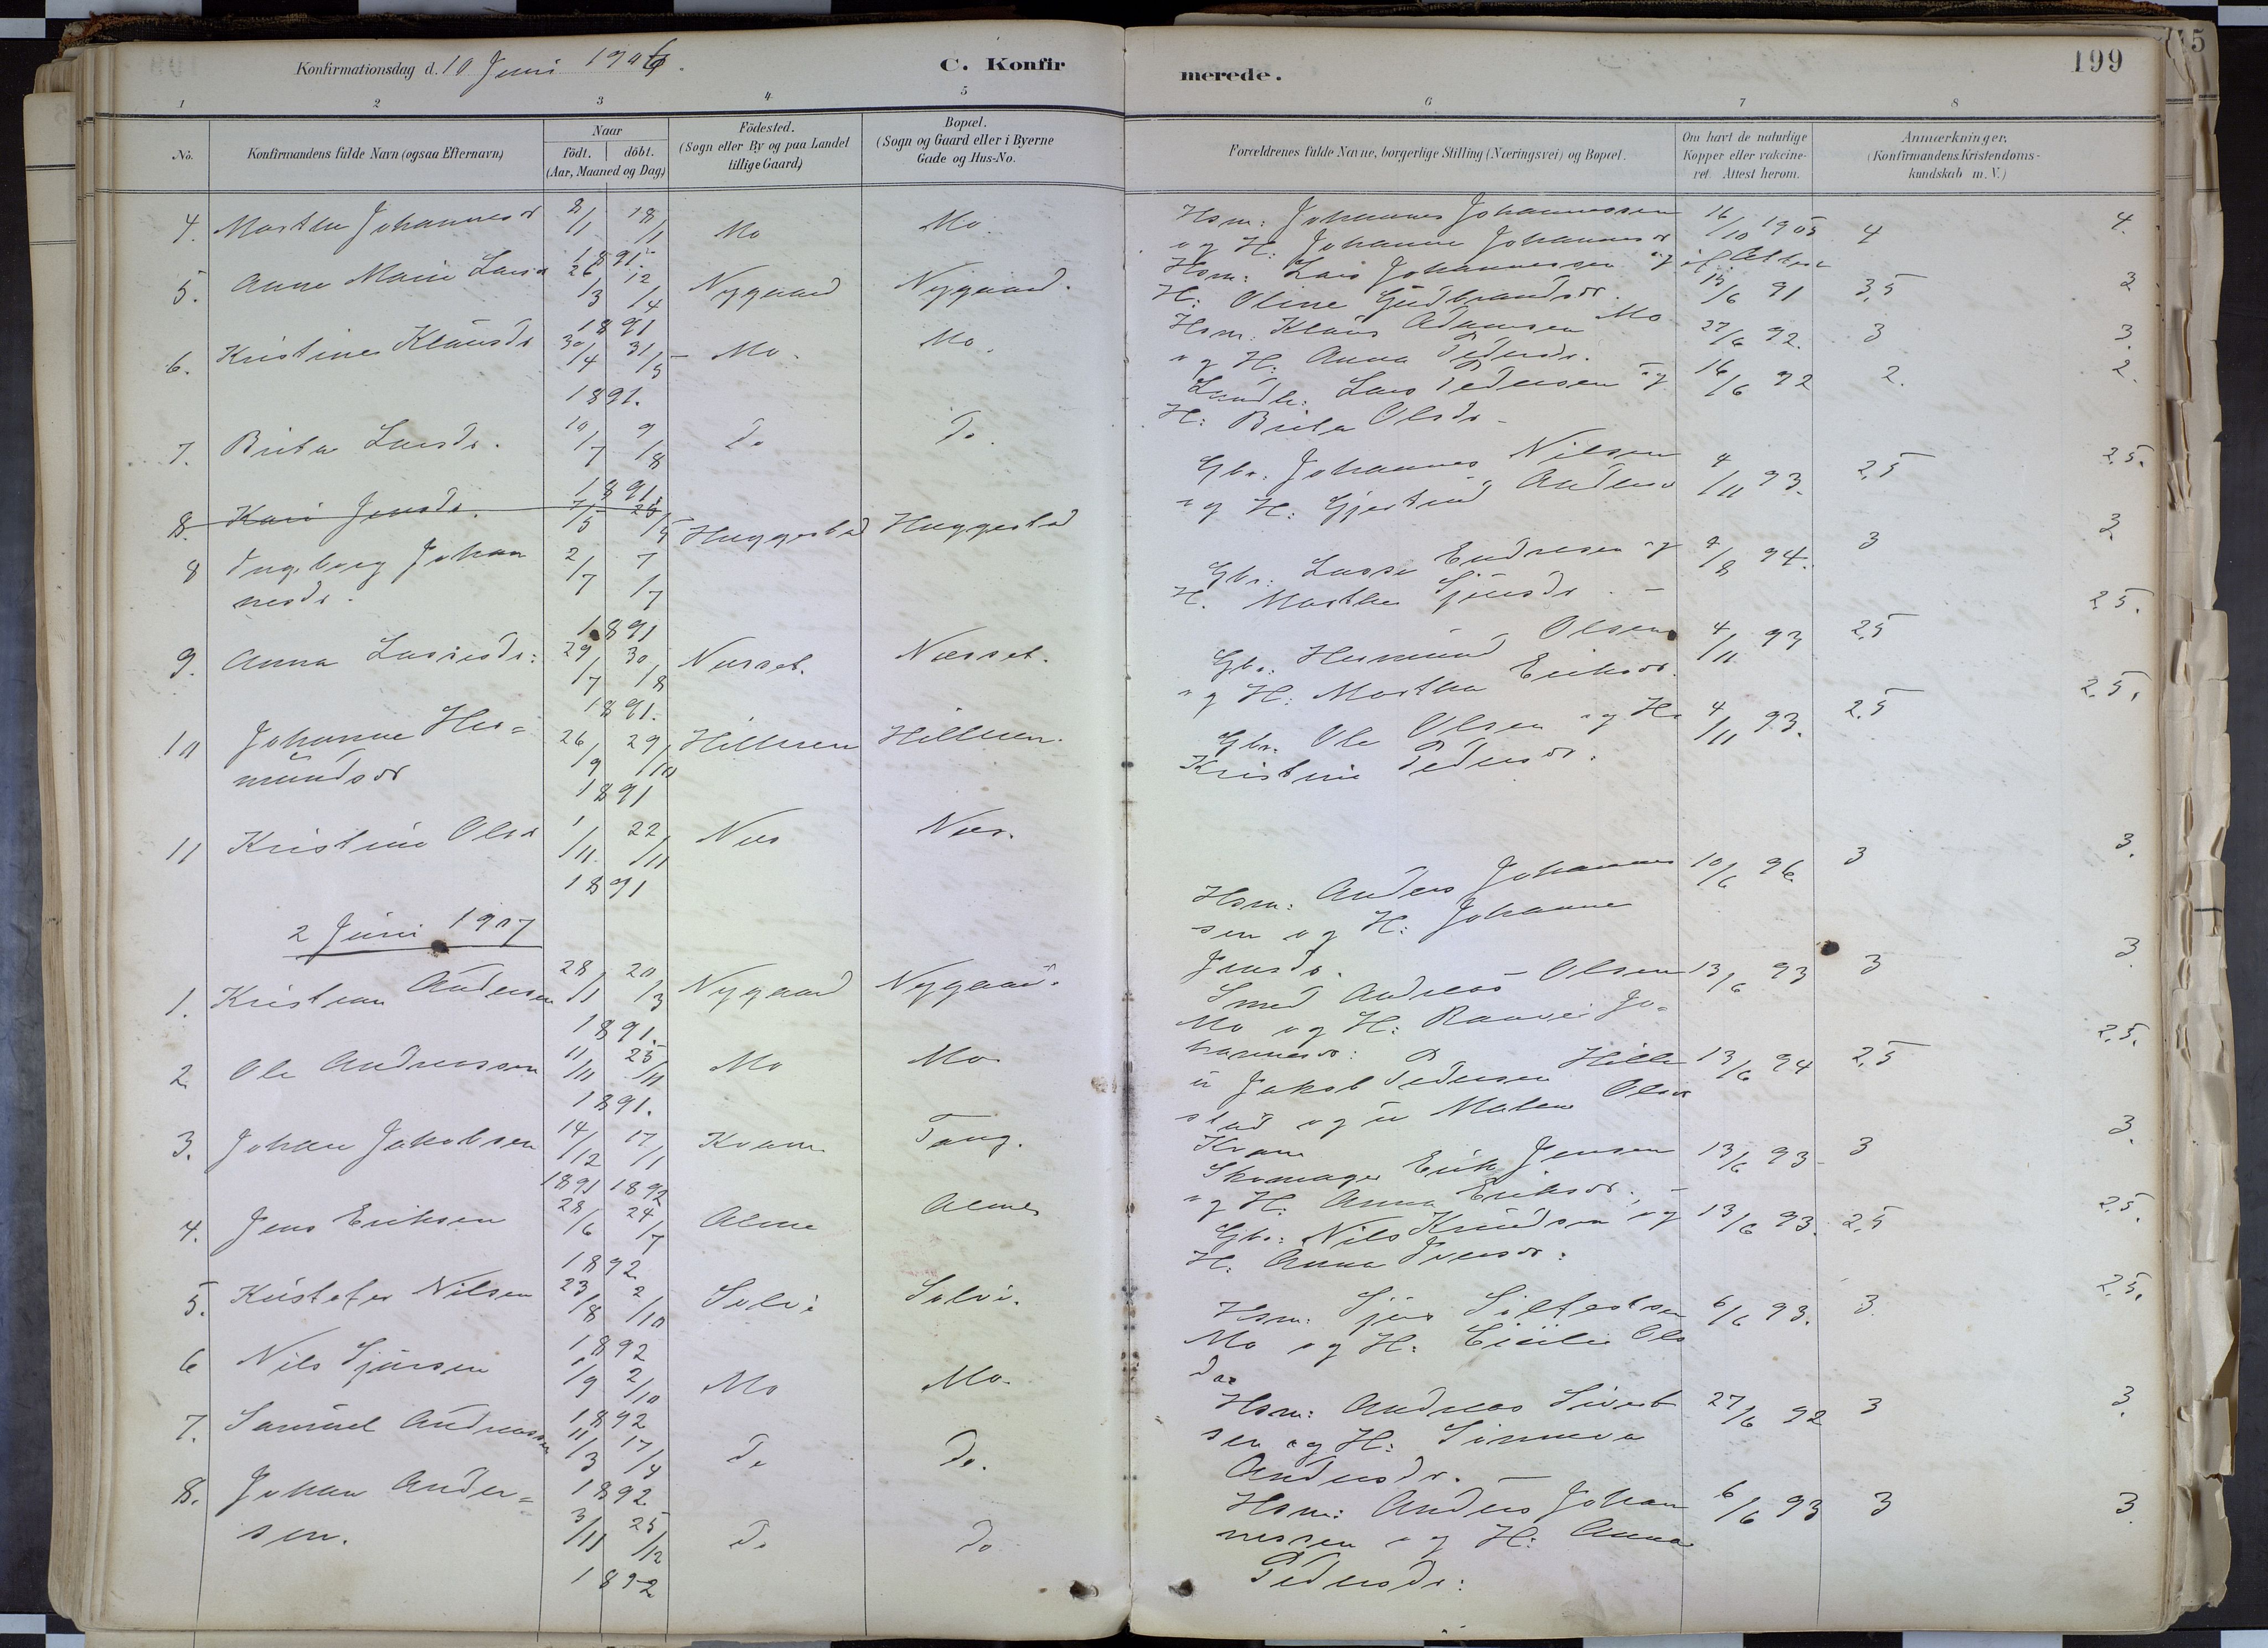 Konfirmationsdag d. 10 Juni 1906.
C. Konfir
1 2 3 4 5
No.
Konfirmandens fulde Navn (ogsaa Efternavn)
Naar
födt. döbt.
(Aar, Maaned og Dag)
Födested.
(Sogn eller By og paa Landet
tillige Gaard)
Bopæl.
(Sogn og Gaard eller i Byerne
Gade og Hus-No.
4. Marthe Johannesd 2/1 18/1 Mo Mo.
1891
5. Anne Marie Larsd 26/3 12/4 Nygaard Nygaard.
1891
6. Kristine Klausdr 30/4 31/5 Mo. Mo.
1891.
7. Brita Larsdr. 10/7 9/8 Do Do.
1891.
8. Kari Jensdr. 7/5 26/5 Huggestad Huggestad
8 Ingeborg Johan 2/7 7/7
nesdr.
1891
9. Anna Lassesdr: 29/7 30/8 Næsset. Næsset.
1891.
10 Johanne Her= 26/9 29/10 Hillesen Hillesen.
mundsdr
1891
11 Kristine Olsd 1/11 22/11 Næs Næs.
1891
2 Juni 1907
1. Kristian Andersen 28/1 20/3 Nygaard Nygaard.
1891.
2 Ole Andreassen 11/11 25/11 Mo Mo
1891.
3. Johan Jakobsen 14/12 17/1 Kvam Tang.
1891 1892
4. Jens Eriksen 28/6 24/7 Alme Alme
1892
5. Kristofer Nilsen 23/8 2/10 Solvi Solvi.
1892
6 Nils Sjursen 1/9 2/10 Mo Mo.
1892
7. Samuel Andreassen 11/3 17/4 Do Do.
1892
8. Johan Ander= 3/11 25/12 Do Do
sen.
1892
merede.
199
6 7 8
Forældrenes fulde Navne, borgerlige Stilling (Næringsvei) og Bopæl.
Om havt de naturlige
Kopper eller vakcine-
ret. Attest herom.
Anmærkninger,
(Konfirmandens Kristendoms-
kundskab m. V.)
Hsm: Johannes Johannessen 16/10 1905 4 4.
og H: Johanne Johannesdr
Hsm: Lars Johannessen og 15/6 91 3,5 3
H: Oline Gudbrandsdr.
Hsm. Klaus Adamsen Mo 27/6 92. 3 3.
og H. Anna Pedersdr.
Lars Pedersen og 16/6 92 2. 2.
H: Brita Olsdr
Gbr. Johannes Nilsen 4/11 93. 2,5 2,5.
og H: Gjertrud Andersd
Gbr: Lasse Endresen og 4/8 94. 3 3
H. Marthe Sjursdr.
Gbr: Hermund Olsen 4/11 93 2,5 2,5.
og H: Martha Eriksdr.
Gbr. Ole Olsen og H: 4/11 93. 2,5 2,5.
Kristine Pedersdr.
Hsm: Anders Johannes 10/6 96 3 3.
sen og H: Johanne
Jensdr.
Smed Andreas Olsen 13/6 93 3 3
Mo og H: Jo=
hannesdr:
u Jakob Pedersen Hille 13/6 94 2,5 2,5.
stad og u Malene Olsd
Kvam
Skomager Erik Jensen 13/6 93 3 3.
og H. Anna Eriksdr.
Gbr: Nils Knudsen og 13/6 93. 2,5 2,5.
H: Anna Iversdr:
Hsm: Sjur Silfestsen 6/6 93. 3. 2,5.
Mo og H: Cicilie Ols
dr
Hsm: Andreas Sivert 27/6 92 3 3.
sen og H: Sinneva
Andersdr.
Hsm: Anders Johan 6/6 93 3 3.
nessen og H: Anna
Pedersdr: